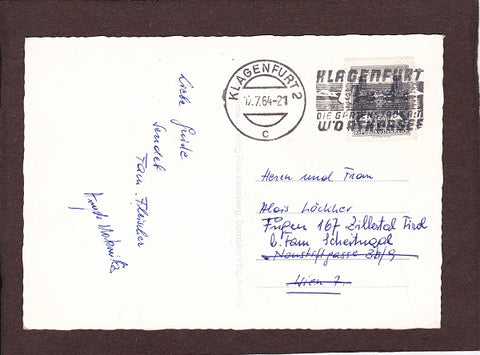 Liebe Grüße
sendet
Fam. Fleischer
KLAGENFURT 2
17.7.64-21
c
KLAGENFURT
DIE GARTENSTADT AM
WÖRTHERSEE
Herrn und Frau
Alois Löckher
Fügen 167 Zillertal Tirol
b. Fam. Scheitnagl
Neustiftgasse 36/9
Wien 7.